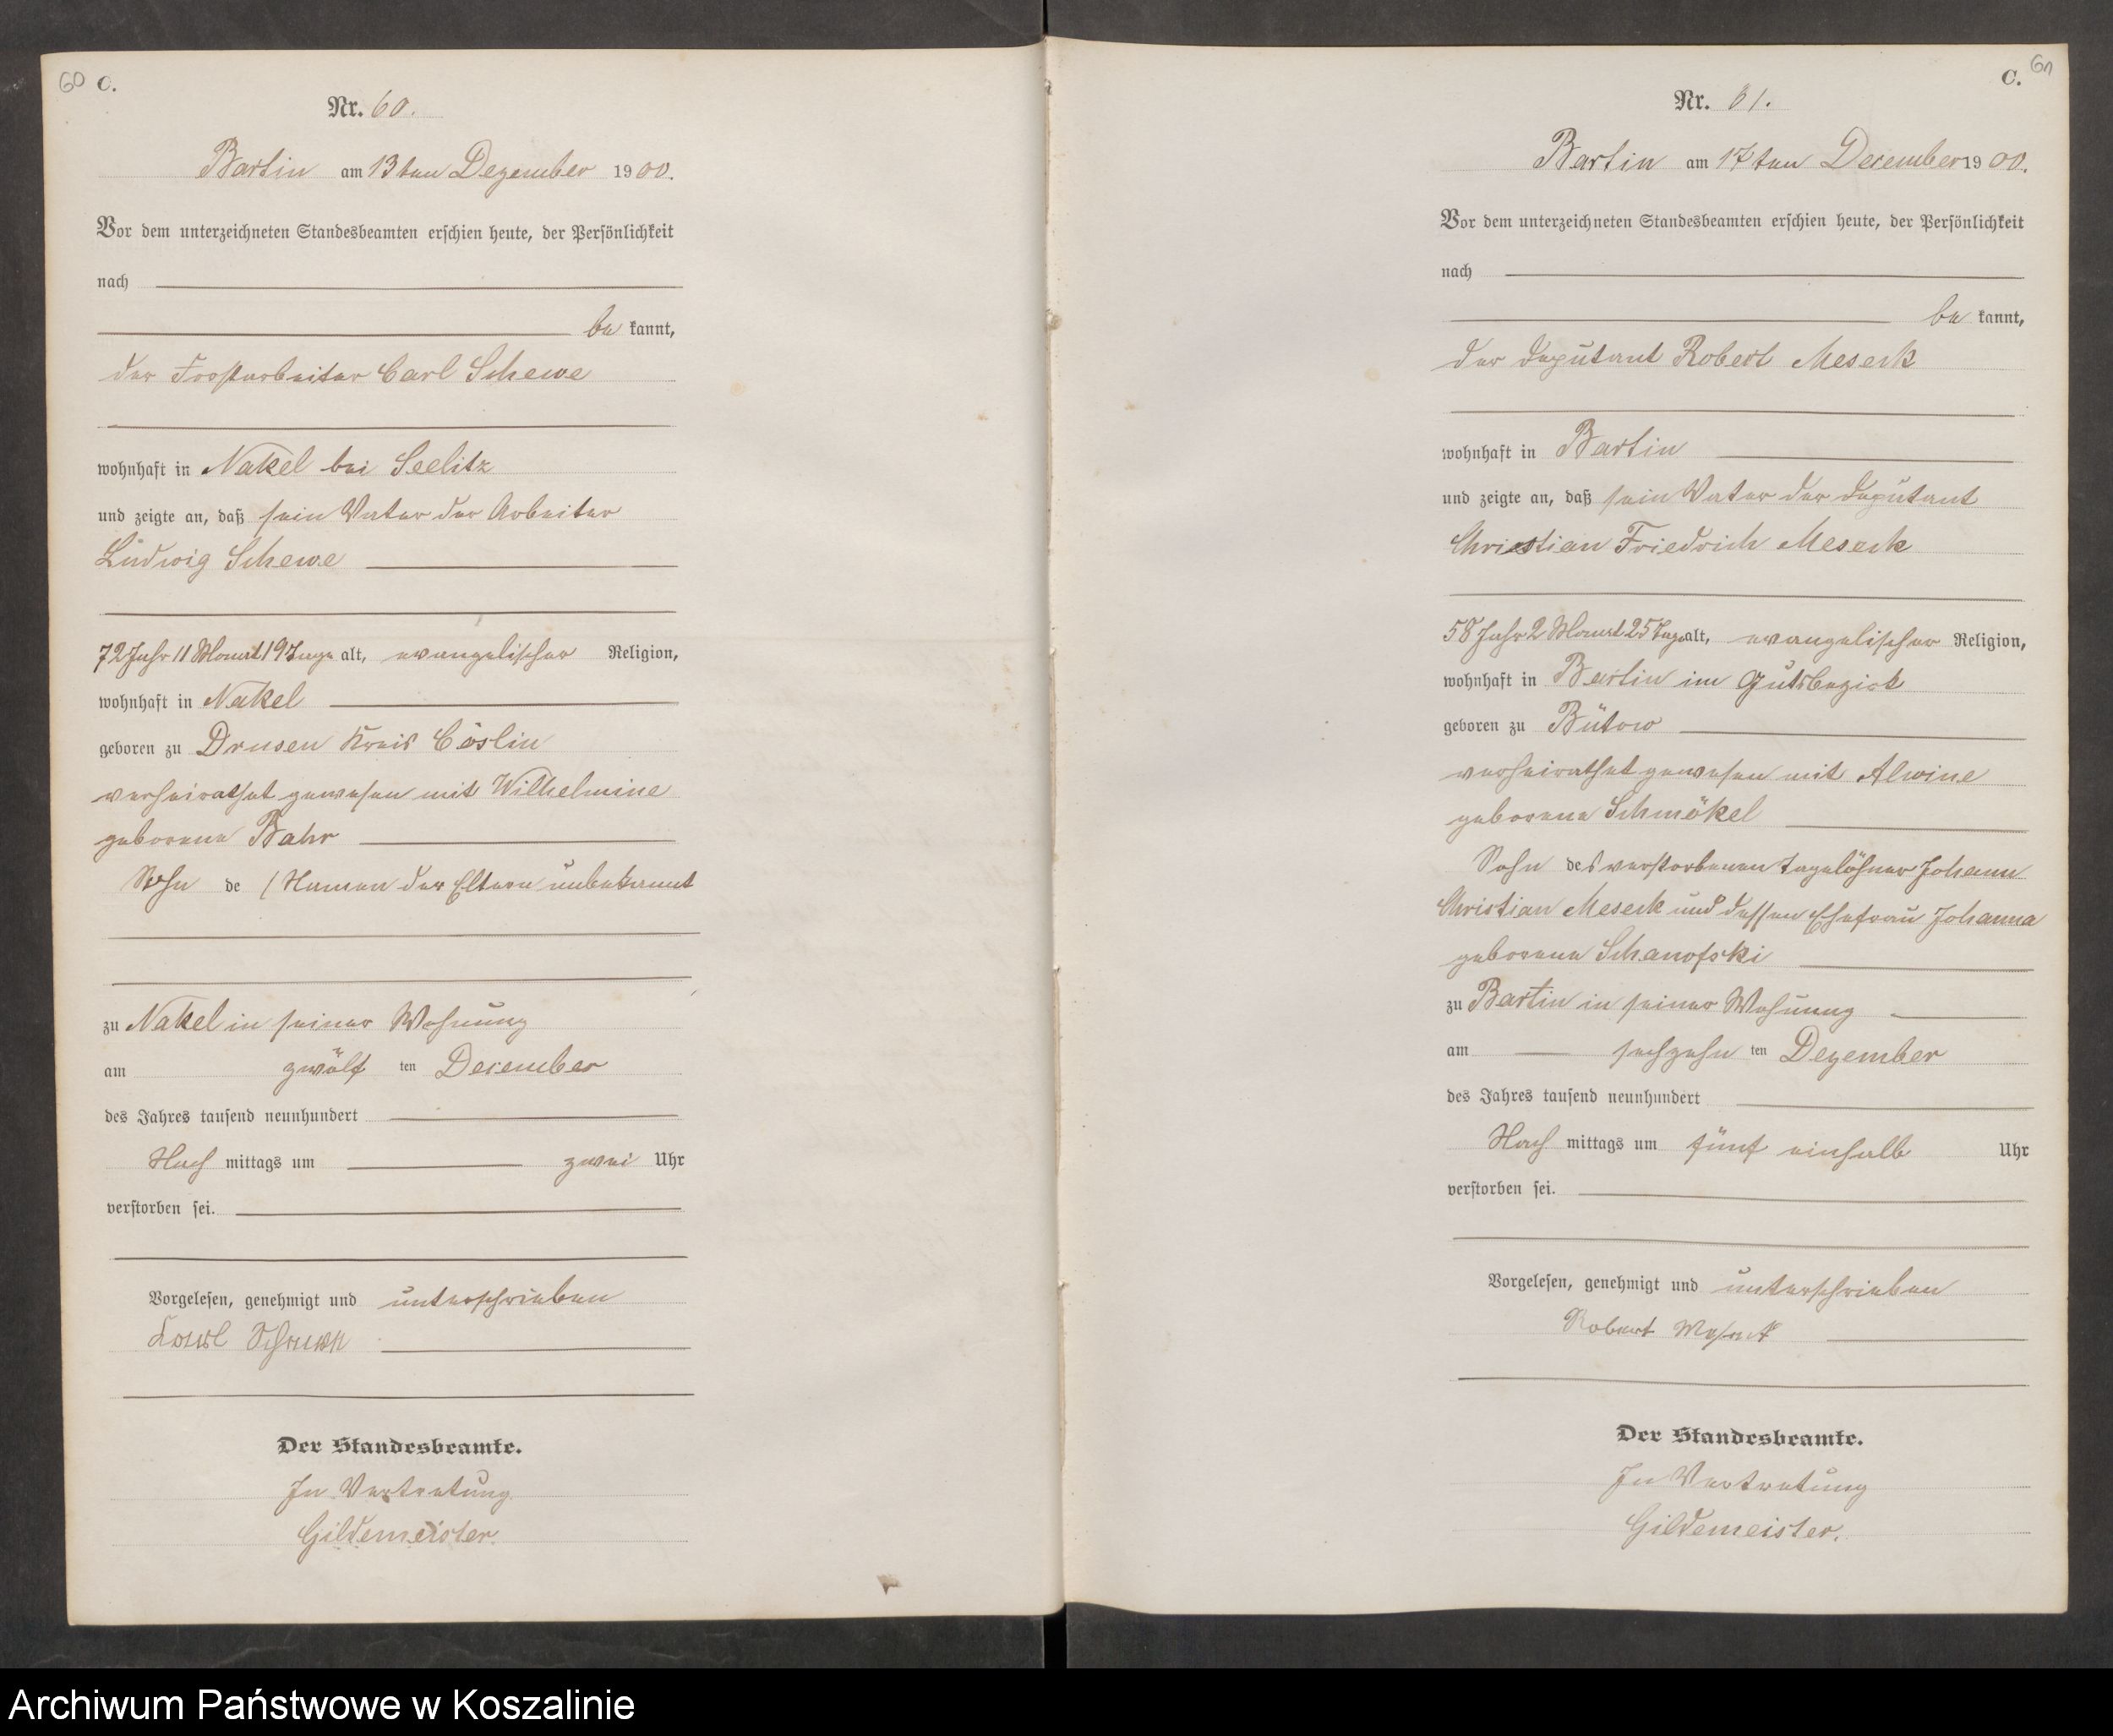 60 C.
Nr. 60.
Bartin am 13ten Dezember 1900.
Vor dem unterzeichneten Standesbeamten erschien heute, der Persönlichkeit
nach
be kannt,
der Forstarbeiter Carl Schewe
wohnhaft in Nakel bei Seelitz
und zeigte an, daß sein Vater der Arbeiter
Ludwig Schewe
72 Jahr 11 Monat 19 Tage alt, evangelischer Religion,
wohnhaft in Nakel
geboren zu Drusen Kreis Cöslin
verheirathet gewesen mit Wilhelmine
geborene Bahr
Sohn de / Namen der Eltern unbekannt
zu Nakel in seiner Wohnung
am zwölf ten December
des Jahres tausend neunhundert
Nach mittags um zwei Uhr
verstorben sei.
Vorgelesen, genehmigt und unterschrieben
Der Standesbeamte.
In Vertretung
Gildemeister.
C. 61
Nr. 61.
Bartin am 17ten December 1900.
Vor dem unterzeichneten Standesbeamten erschien heute, der Persönlichkeit
nach
be kannt,
der Deputant Robert Meseck
wohnhaft in Bartin
und zeigte an, daß sein Vater der Deputant
Christian Friedrich Meseck
58 Jahr 2 Monat 25 Tage alt, evangelischer Religion,
wohnhaft in Bartin im Gutsbezirk
geboren zu Bütow
verheirathet gewesen mit Alwine
geborene Schmökel
Sohn des verstorbenen Tagelöhner Johann
Christian Meseck und dessen Ehefrau Johanna
geborene Schanofski
zu Bartin in seiner Wohnung
am sechzehn ten Dezember
des Jahres tausend neunhundert
Nach mittags um fünf einhalb Uhr
verstorben sei.
Vorgelesen, genehmigt und unterschrieben
Robert Meseck
Der Standesbeamte.
In Vertretung
Gildemeister.
Archiwum Państwowe w Koszalinie